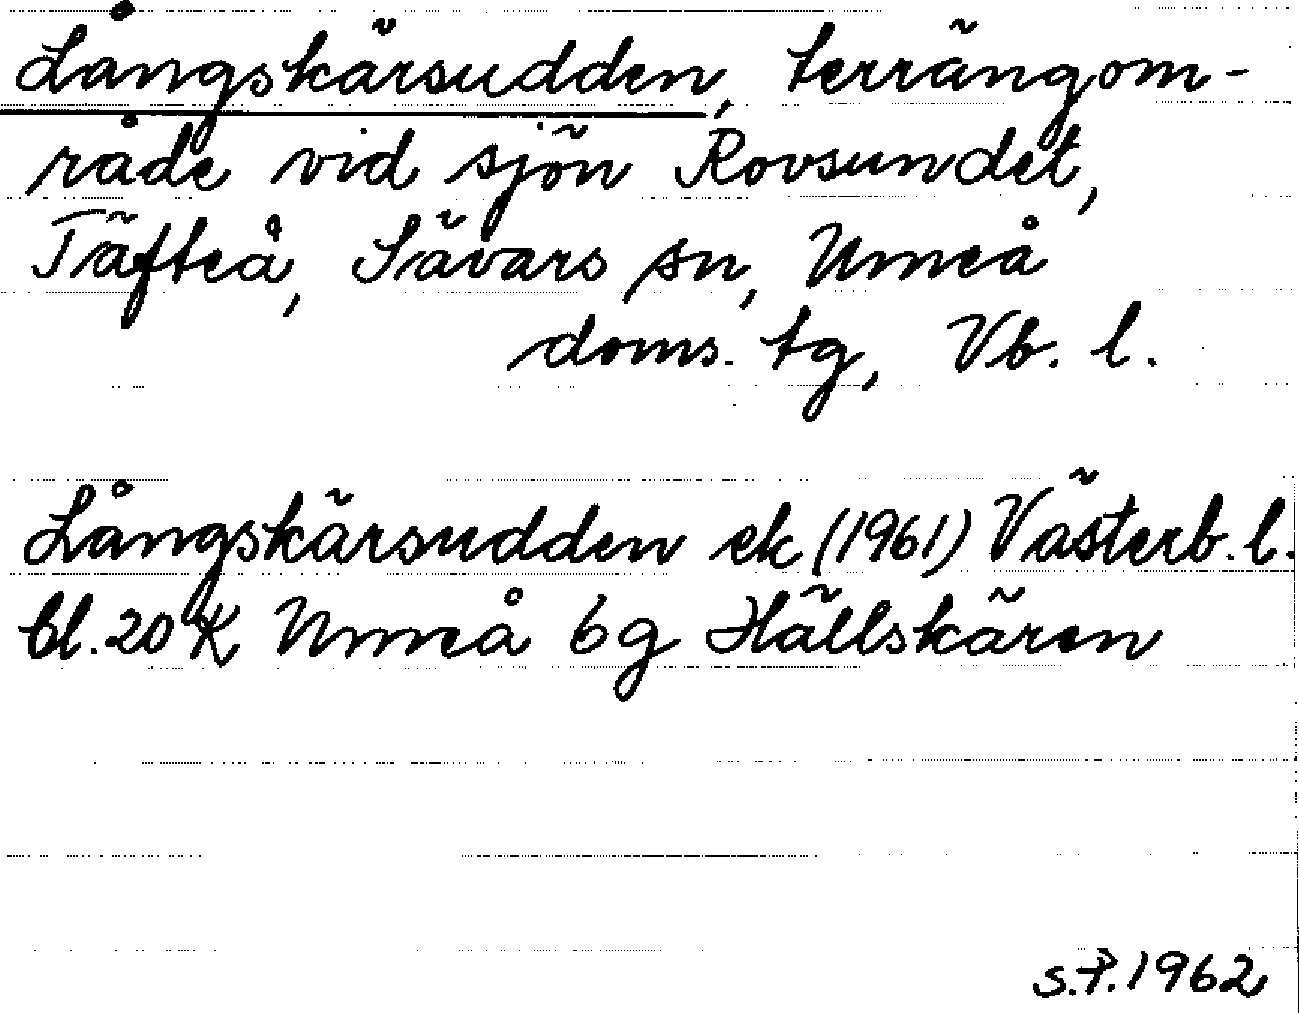 Långskärsudden, terrängom-
råde vid sjön Rovsundet,
Täfteå, Sävars sn, Umeå
doms. tg, Vb. l.
Långskärsudden ek (1961) Västerb. l.
bl. 20 K Umeå 6g Hällskären
S.P. 1962